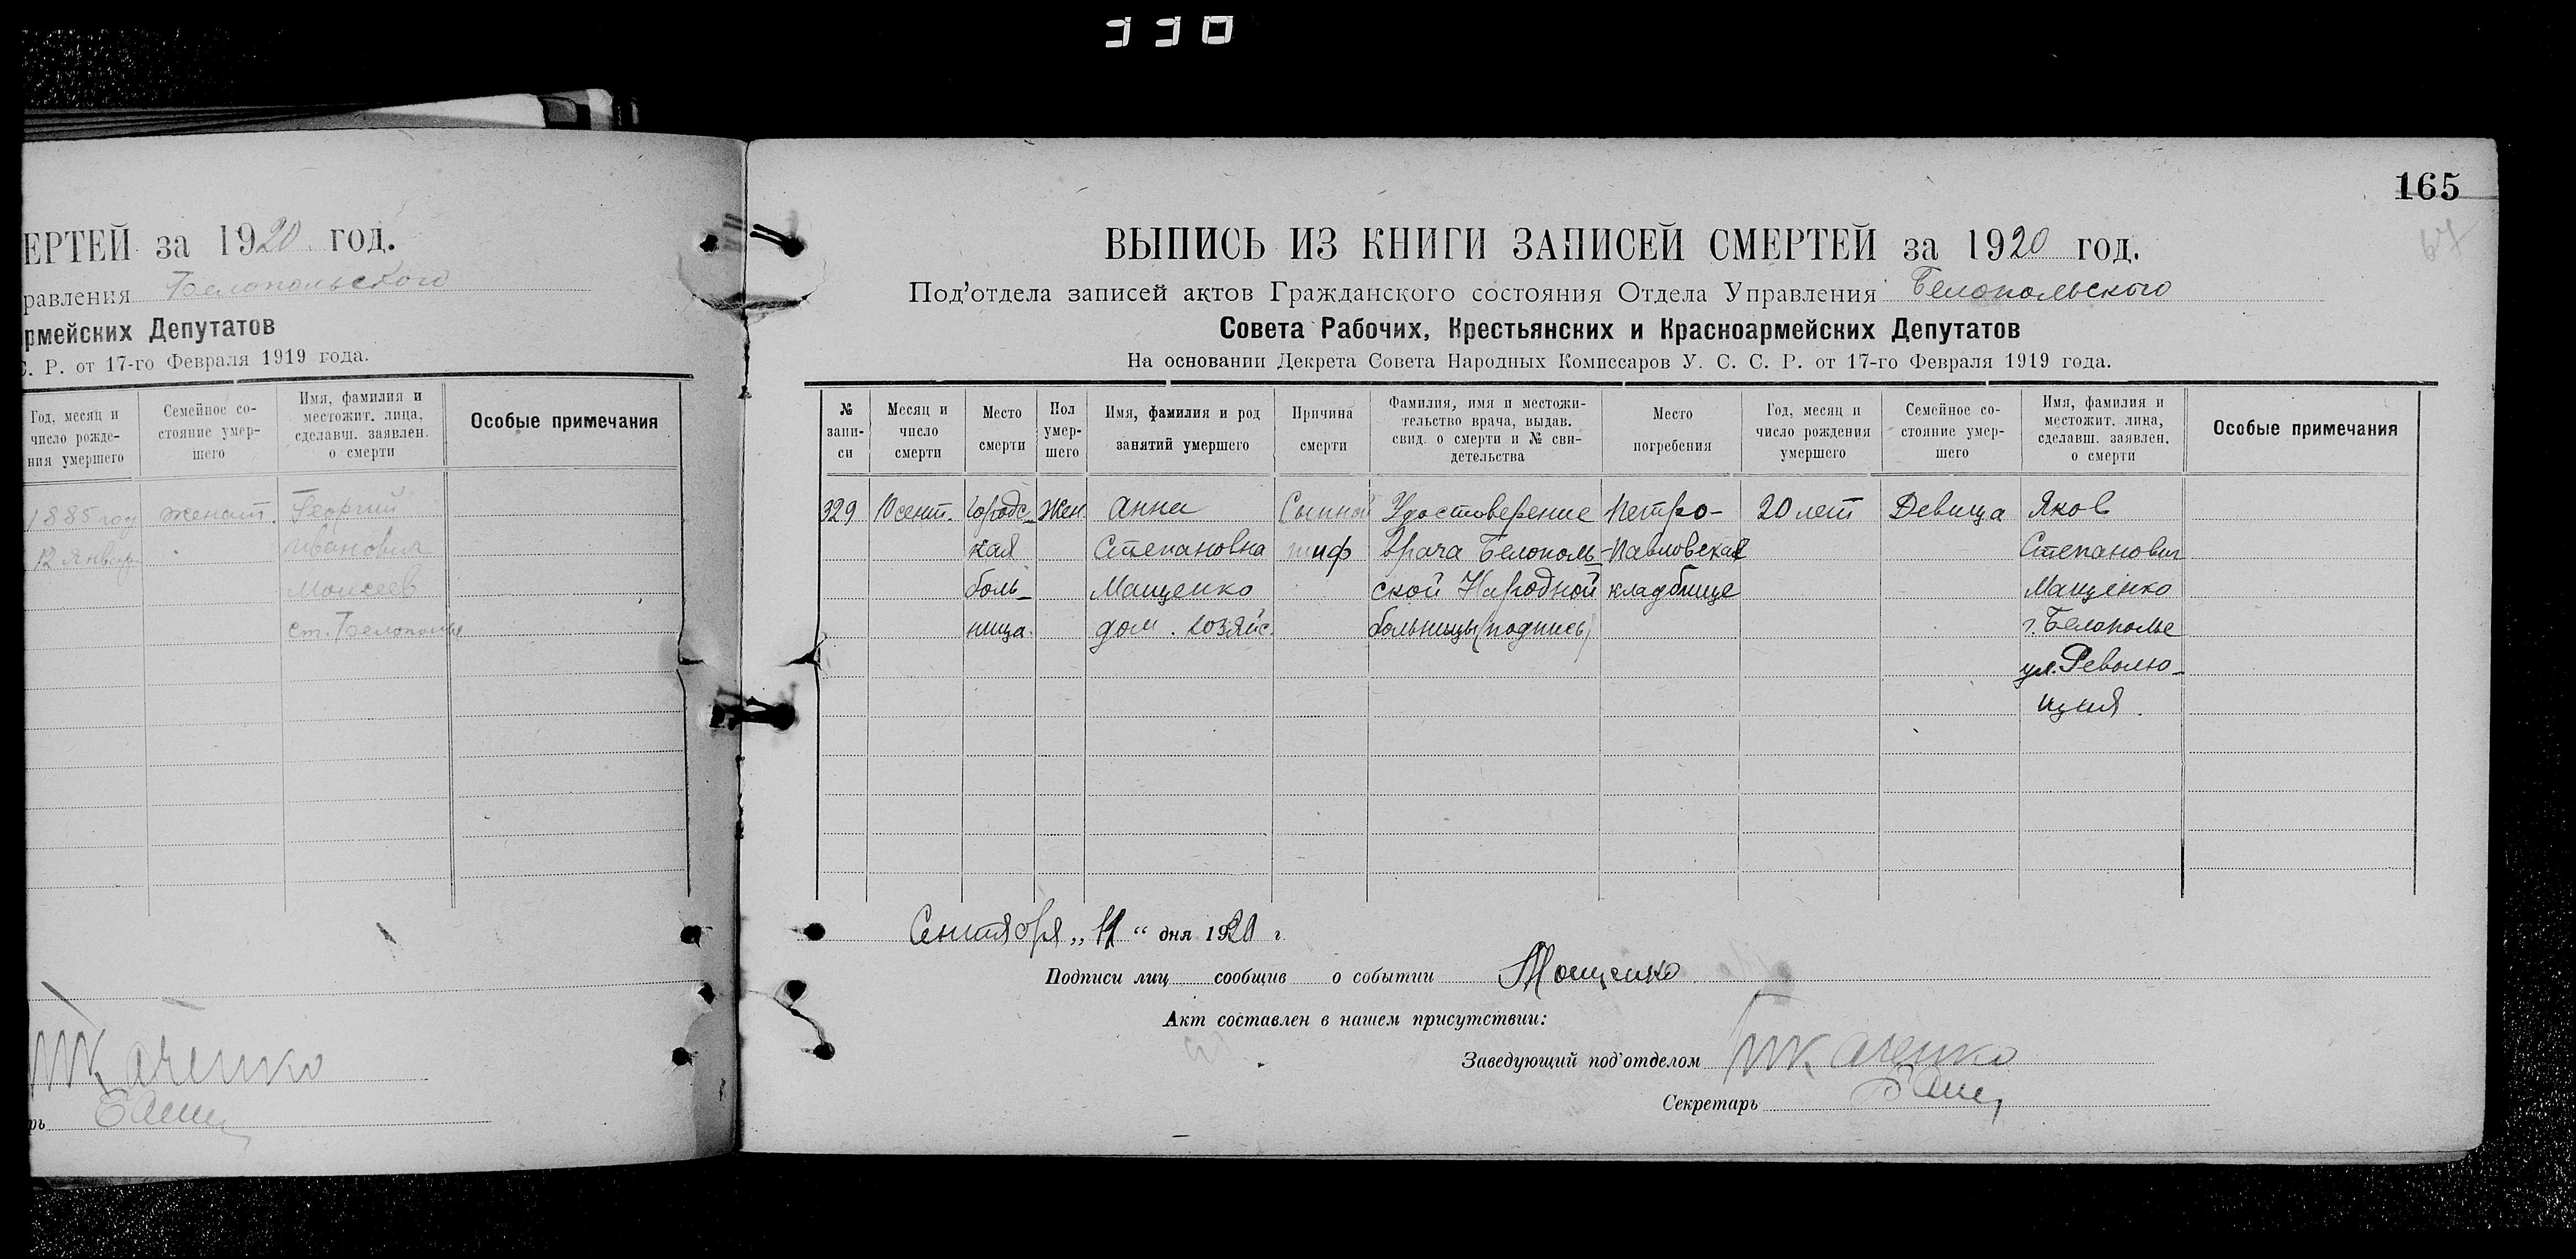 330
ЕРТЕЙ за 1920 год.
равления Белопольского
рмейских Депутатов
С. Р. от 17-го Февраля 1919 года.
Год, месяц и число рожде- ния умершего
Семейное со- стояние умер- шего
Имя, фамилия и местожит. лица, сделавш. заявлен. о смерти
Особые примечания
1885 году женат. Георгий
12 Январ. Иванович
Моисеев
ст. Белополье
Ткаченко
рь
165
67
ВЫПИСЬ ИЗ КНИГИ ЗАПИСЕЙ СМЕРТЕЙ за 1920 год.
Под'отдела записей актов Гражданского состояния Отдела Управления Белопольского
Совета Рабочих, Крестьянских и Красноармейских Депутатов
На основании Декрета Совета Народных Комиссаров У. С. С. Р. от 17-го Февраля 1919 года.
№ запи- си
Месяц и число смерти
Место смерти
Пол умер- шего
Имя, фамилия и род занятий умершего
Причина смерти
Фамилия, имя и местожи- тельство врача, выдав. свид. о смерти и № сви- детельства
Место погребения
Год, месяц и число рождения умершего
Семейное со- стояние умер- шего
Имя, фамилия и местожит. лица, сделавш. заявлен. о смерти
Особые примечания
329 10 сент. Городс- Жен Анна Сыпной Удостоверение Петро- 20 лет Девица Яков
кая Степановна тиф врача Белополь- Павловская Степанович
боль- Мащенко ской Народной кладбище Мащенко
ница. дом. хозяйс. больницы (подпись) г. Белополье
ул. Револю-
ция.
Сентября „11“ дня 1920 г.
Подписи лиц сообщив о событии Мощенко
Акт составлен в нашем присутствии:
Заведующий под'отделом Ткаченко
Секретарь